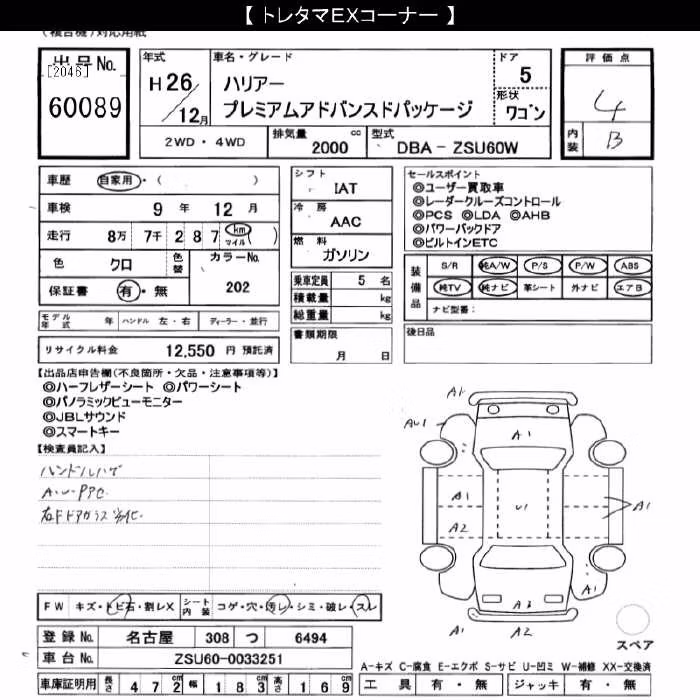 【 トレタマEXコーナー 】
(複合機)対応用紙
出品No.
[2046]
60089
年式
H26/12月
車名・グレード
ハリアー
プレミアムアドバンスドパッケージ
ドア
5
形状
ワゴン
評価点
4
内装
B
2WD・4WD
排気量 2000 cc
型式 DBA-ZSU60W
車歴 自家用・( )
車検 9年 12月
走行 8万 7千 2 8 7 km マイル ( )
色 クロ 色替 カラーNo. 202
保証書 有・無
モデル年式 年 ハンドル 左・右 ディーラー・並行
リサイクル料金 12,550 円 預託済
シフト IAT
冷房 AAC
燃料 ガソリン
乗車定員 5 名
積載量 kg
総重量 kg
書類期限
月 日
セールスポイント
◎ユーザー買取車
◎レーダークルーズコントロール
◎PCS ◎LDA ◎AHB
◎パワーバックドア
◎ビルトインETC
装備品
S/R 純A/W P/S P/W ABS
純TV 純ナビ 革シート 外ナビ エアB
ナビ型番:
後日品
【出品店申告欄(不良箇所・欠品・注意事項等)】
◎ハーフレザーシート ◎パワーシート
◎パノラミックビューモニター
◎JBLサウンド
◎スマートキー
【検査員記入】
ハンドルハゲ
A.W.Pアセ
右FドアガラスS劣化
A1
AU1
A1
A1
U1
A1
A2
A1
A3
A1
A2
スペア
FW キズ・トビ石・割レX シート内装 コゲ・穴・汚レ・シミ・破レ・スレ
登録No. 名古屋 308 つ 6494
車台No. ZSU60-0033251
車庫証明用 長さ 4 7 2 cm 幅 1 8 3 cm 高さ 1 6 9 cm
A-キズ C-腐食 E-エクボ S-サビ U-凹ミ W-補修 XX-交換済
工具 有・無 ジャッキ 有・無